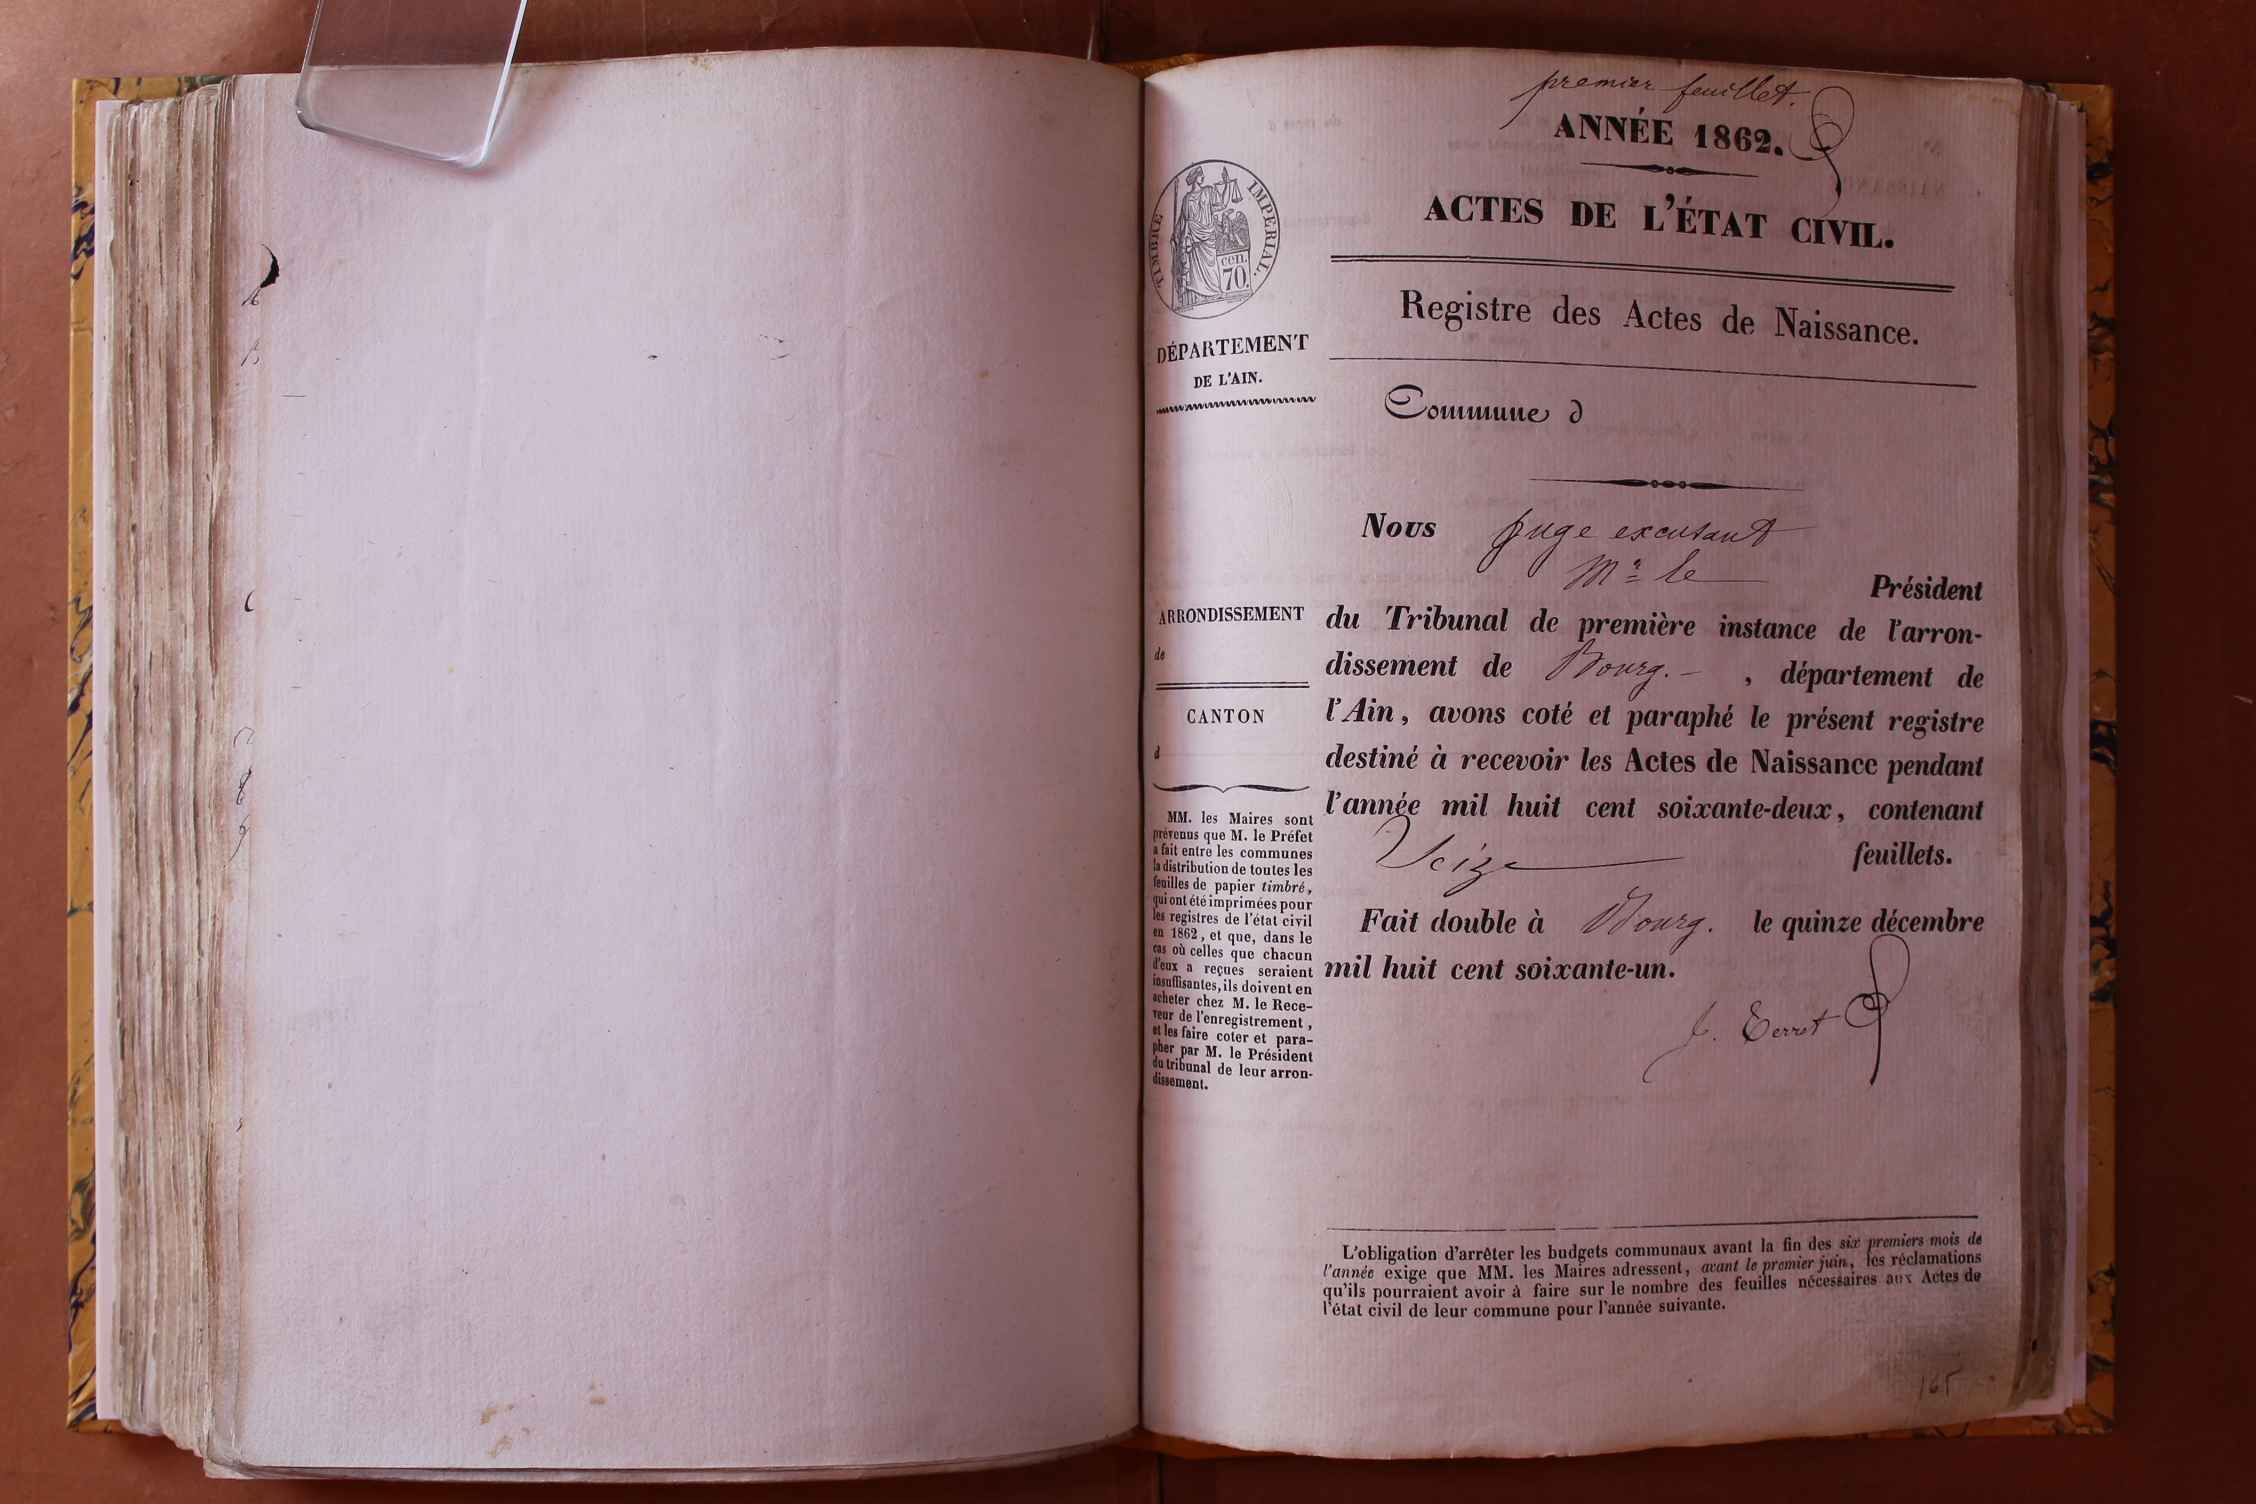 premier feuillet.
ANNÉE 1862.
ACTES DE L'ÉTAT CIVIL.
Registre des Actes de Naissance.
Commune d
TIMBRE IMPERIAL.
cen.
70.
DÉPARTEMENT
DE L'AIN.
ARRONDISSEMENT
de
CANTON
d
MM. les Maires sont
prévenus que M. le Préfet
a fait entre les communes
la distribution de toutes les
feuilles de papier timbré,
qui ont été imprimées pour
les registres de l'état civil
en 1862, et que, dans le
cas où celles que chacun
d'eux a reçues seraient
insuffisantes, ils doivent en
acheter chez M. le Rece-
veur de l'enregistrement,
et les faire coter et para-
pher par M. le Président
du tribunal de leur arron-
dissement.
Nous juge excusant
Mr le Président
du Tribunal de première instance de l'arron-
dissement de Bourg. , département de
l'Ain, avons coté et paraphé le présent registre
destiné à recevoir les Actes de Naissance pendant
l'année mil huit cent soixante-deux, contenant
Seize feuillets.
Fait double à Bourg. le quinze décembre
mil huit cent soixante-un.
Terret
L'obligation d'arrêter les budgets communaux avant la fin des six premiers mois de
l'année exige que MM. les Maires adressent, avant le premier juin, les réclamations
qu'ils pourraient avoir à faire sur le nombre des feuilles nécessaires aux Actes de
l'état civil de leur commune pour l'année suivante.
165